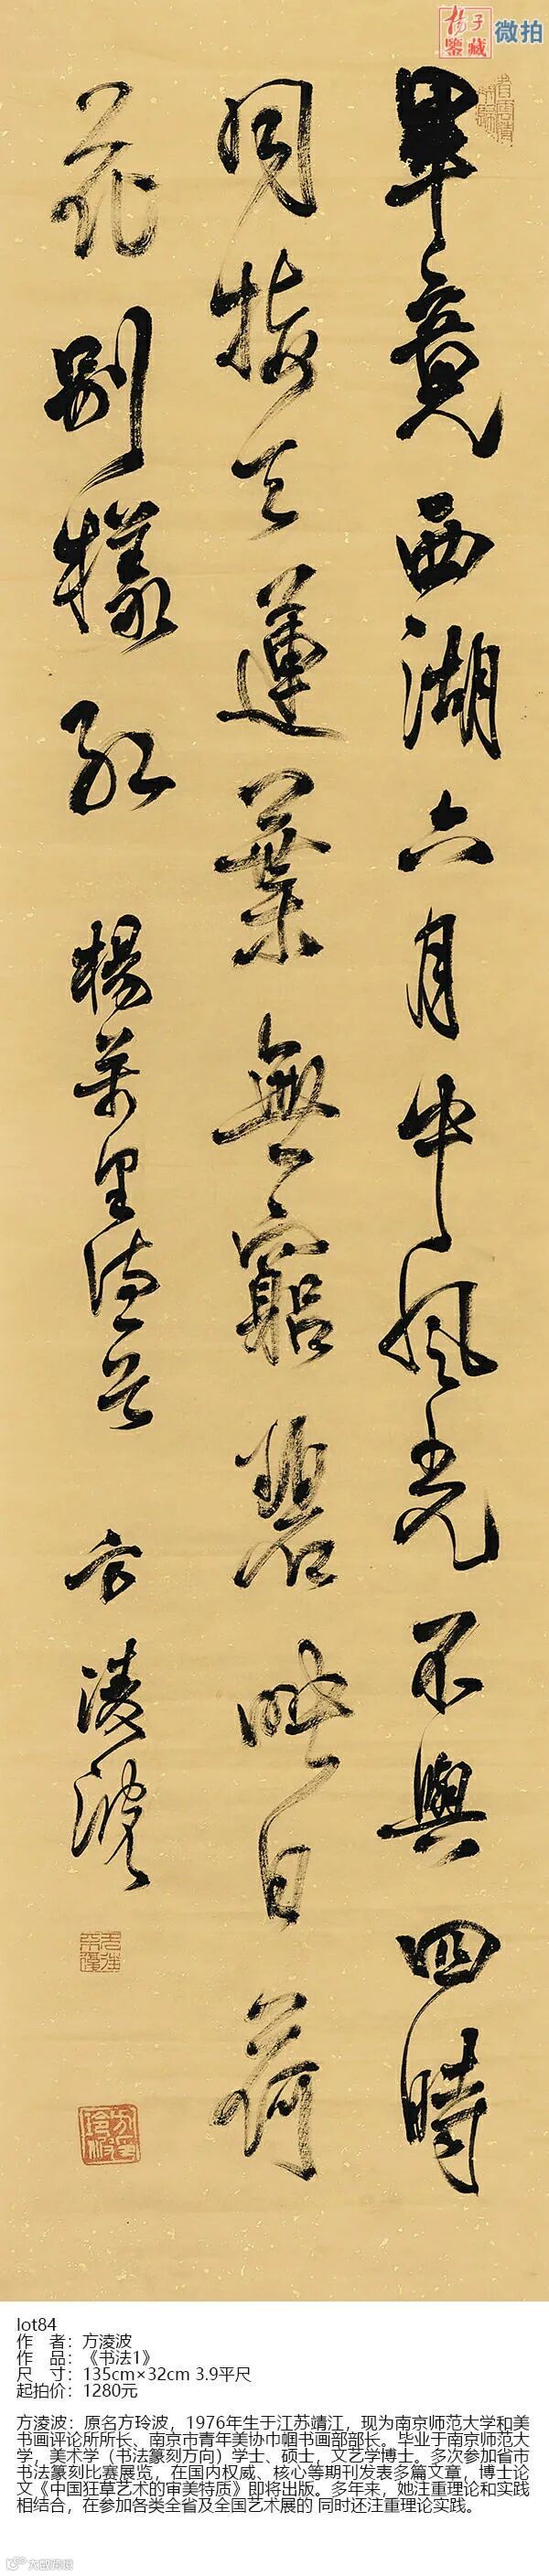 扬子
鉴藏 微拍
畢竟西湖六月中風光不與四時
同接天蓮葉無窮碧映日荷
花別樣紅 楊萬里 方淩波
lot84
作 者：方淩波
作 品：《书法1》
尺 寸：135cm×32cm 3.9平尺
起拍价：1280元
方淩波：原名方玲波，1976年生于江苏靖江，现为南京师范大学和美
书画评论所所长、南京市青年美协巾帼书画部部长。毕业于南京师范大
学，美术学（书法篆刻方向）学士、硕士，文艺学博士。多次参加省市
书法篆刻比赛展览，在国内权威、核心等期刊发表多篇文章，博士论
文《中国狂草艺术的审美特质》即将出版。多年来，她注重理论和实践
相结合，在参加各类全省及全国艺术展的 同时还注重理论实践。
大数跨境